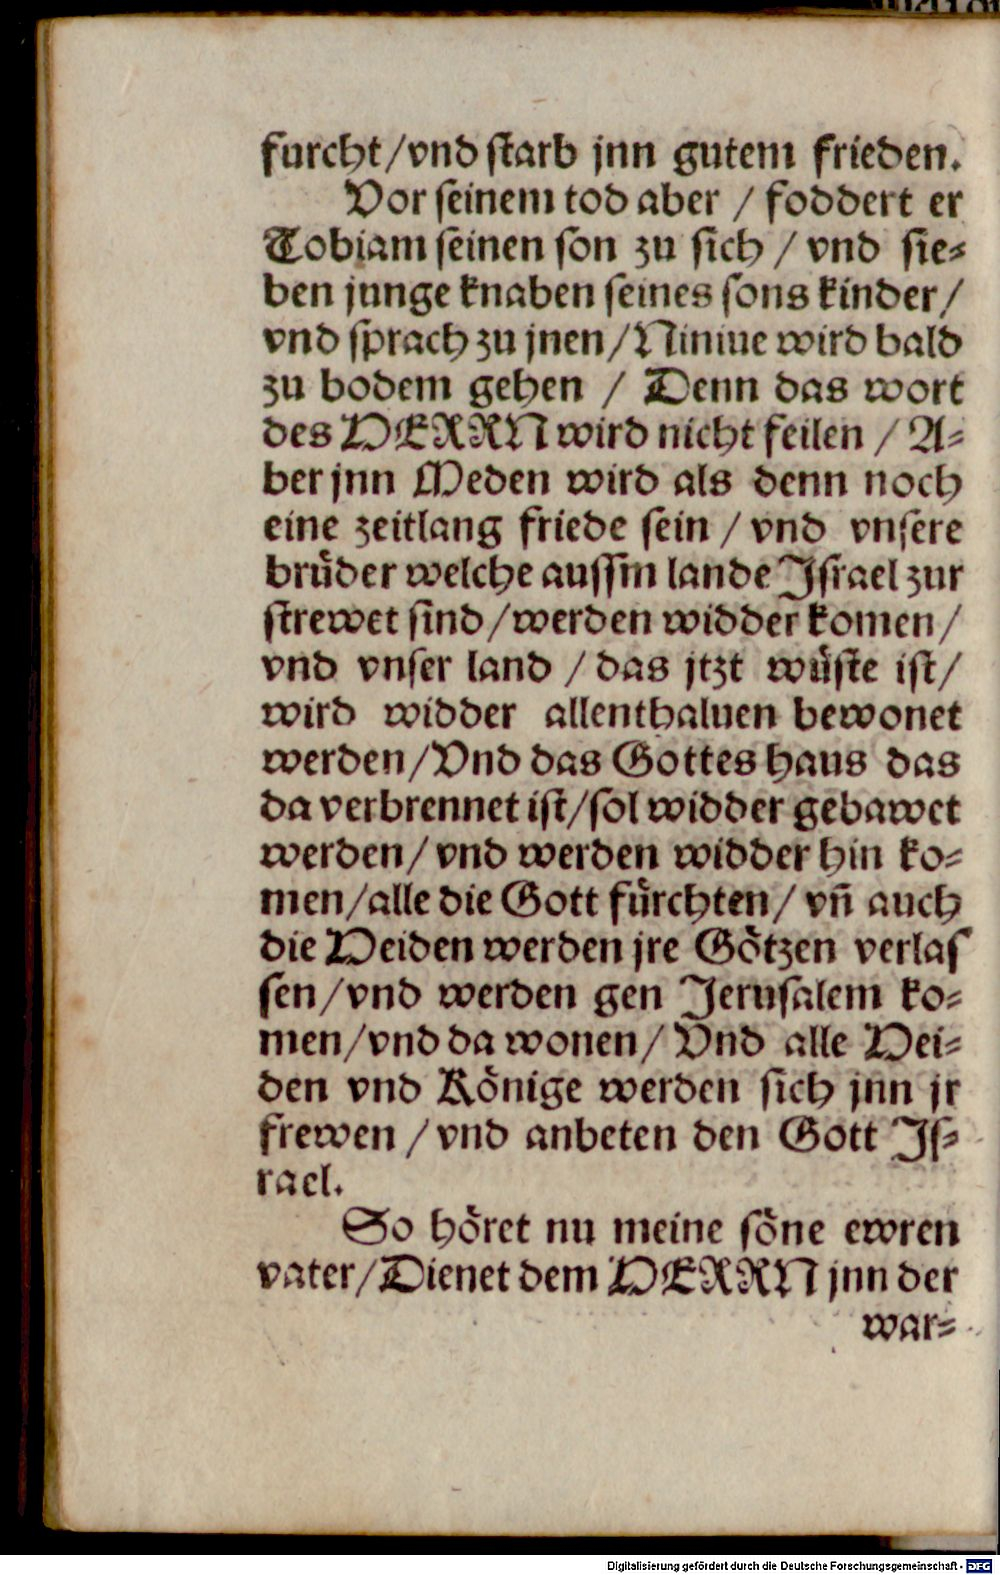 furcht/vnd starb jnn gutem frieden.
Vor seinem tod aber / foddert er
Tobiam seinen son zu sich / vnd sie=
ben junge knaben seines sons kinder/
vnd sprach zu jnen/Niniue wird bald
zu bodem gehen / Denn das wort
des HERRN wird nicht feilen / A=
ber jnn Meden wird als denn noch
eine zeitlang friede sein / vnd vnsere
brüder welche aussm lande Israel zur
strewet sind/werden widder komen/
vnd vnser land / das jtzt wüste ist/
wird widder allenthaluen bewonet
werden/Vnd das Gottes haus das
da verbrennet ist/sol widder gebawet
werden/vnd werden widder hin ko=
men/alle die Gott fürchten/ vn̄ auch
die Heiden werden jre Götzen verlas
sen/vnd werden gen Jerusalem ko=
men/vnd da wonen/ Vnd alle Hei=
den vnd Könige werden sich jnn jr
frewen /vnd anbeten den Gott Is=
rael.
So höret nu meine söne ewren
vater/Dienet dem HERRN jnn der
war=
Digitalisierung gefördert durch die Deutsche Forschungsgemeinschaft - DFG